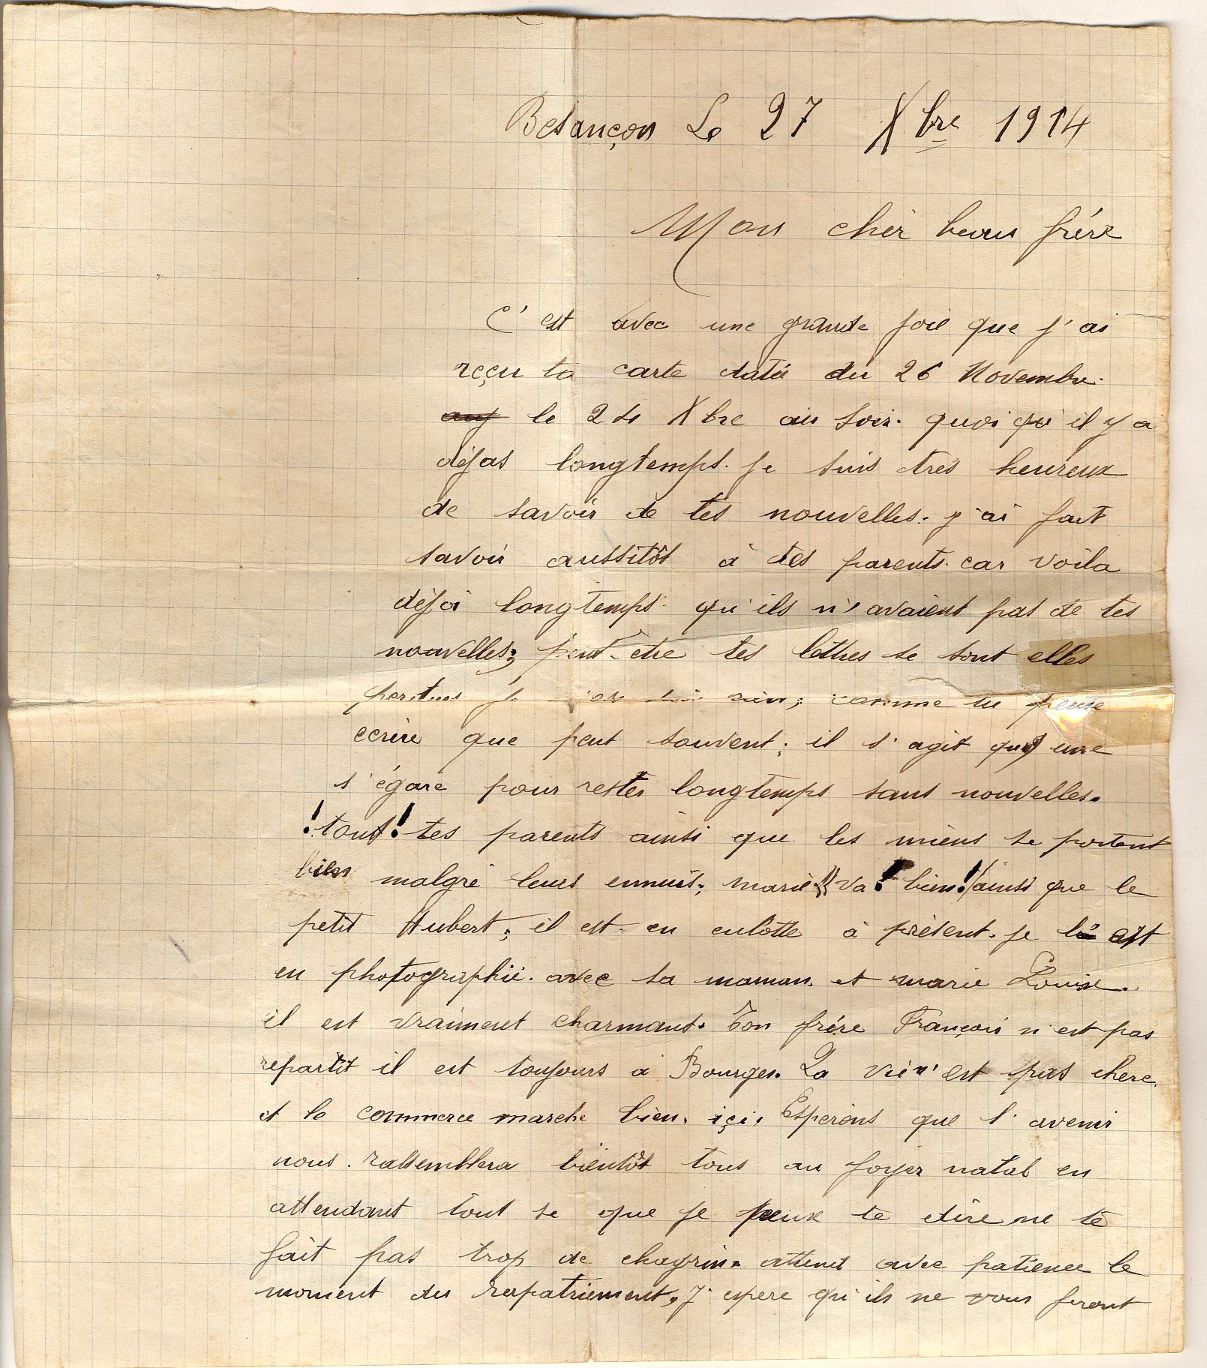 Besançon Le 27 Xbre 1914
Mon cher beau frére
C'est avec une grande joie que j'ai
reçu ta carte datée du 26 Novembre.
le 24 Xbre au soir. quoi qu'il y a
déjas longtemps. je suis tres heureux
de savoir de tes nouvelles. j'ai fait
savoir aussitôt à tes parents. car voila
déja longtemps. qu'ils n'avaient pas de tes
nouvelles; peut-etre tes lettres se sont elles
perdues je rien; comme tu peuse
ecrire que peut souvent; il s'agit que une
s'égare pour rester longtemps sans nouvelles.
! tout! tes parents ainsi que les miens se portent
bien malgré leurs ennuis; marie va! bien! ainsi que le
petit Hubert; il est en culotte à présent. je l'é est
en photographie. avec sa maman. et marie Louise.
il est vraiment charmant. Ton frére François n'est pas
repartit il est toujours à Bourges. La vie n'est pas chere.
et le commerce marche bien. içi. Esperons que l'avenir
nous. rassemblera bientôt tous au foyer natal en
attendant tout se que je peux te dire ne te
fait pas trop de chagrin. attend avec patience le
moment du rapatriement, J'espere qu'ils ne vous feront